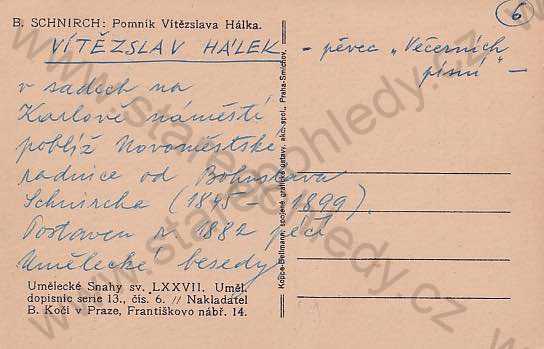 B. SCHNIRCH: Pomník Vítězslava Hálka.
6
VÍTĚZSLAV HÁLEK
- pěvec „Večerních
písní" -
v sadech na
Karlově náměstí
poblíž Novoměstské
radnice od Bohuslava
Schnircha (1845 - 1899).
Postaven r. 1882 péčí
Umělecké besedy
Umělecké Snahy sv. LXXVII. Uměl.
dopisnic serie 13., čís. 6. // Nakladatel
B. Kočí v Praze, Františkovo nábř. 14.
Koppe-Bellmann, spojené grafické ústavy, akc. spol., Praha-Smíchov.
www.starepohledy.cz